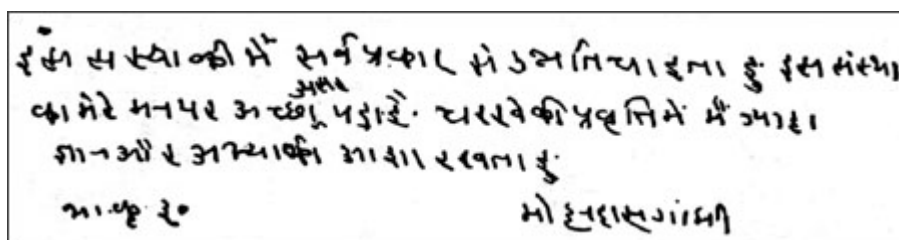 इस संस्था की मैं सर्व प्रकार से उन्नति चाहता हुं इस संस्था
का मेरे मन पर अच्छा असर पड़ा है. चरखे की प्रवृत्ति में मैं ज्यादा
ज्ञान और की आशा रखता हुं
मोहनदास गांधी